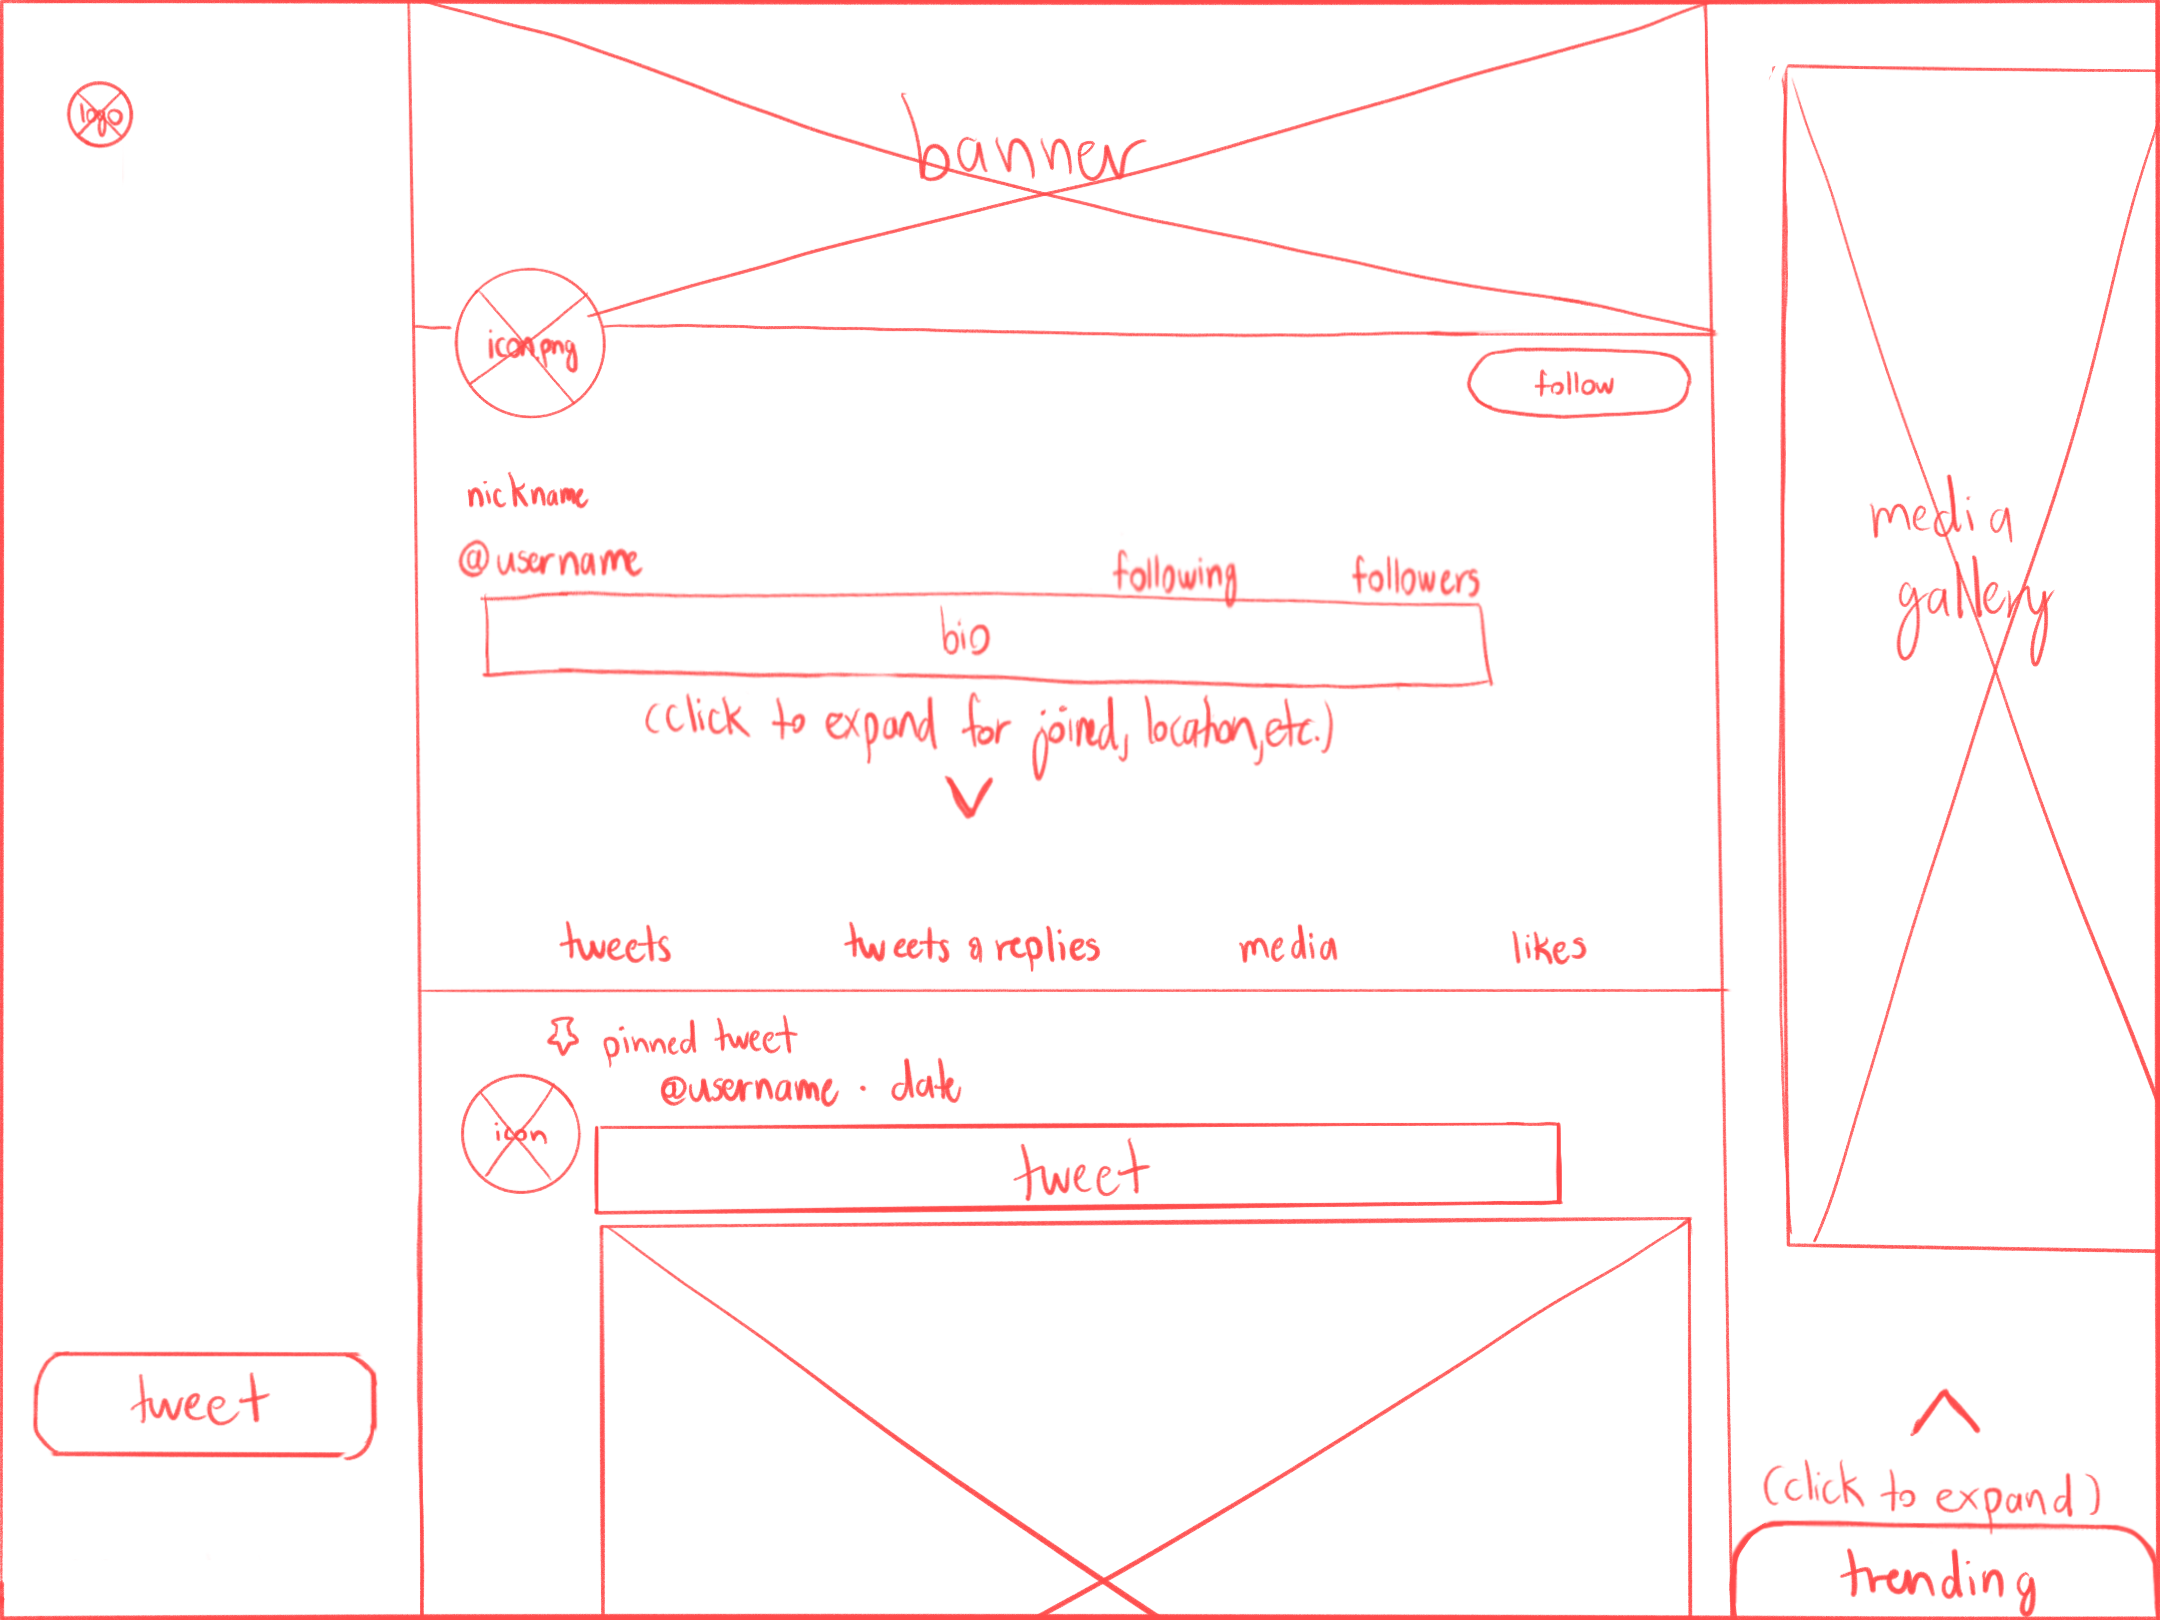 logo
banner
icon.png
follow
nickname
@username
following followers
bio
(click to expand for joined, location, etc.)
tweets tweets & replies media likes
pinned tweet
@username · date
icon
tweet
tweet
media
gallery
(click to expand)
trending